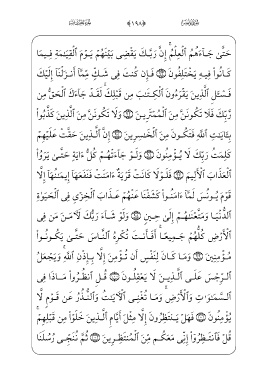 ﴿١٩٨﴾
حَتَّىٰ جَآءَهُمُ ٱلْعِلْمُ إِنَّ رَبَّكَ يَقْضِى بَيْنَهُمْ يَوْمَ ٱلْقِيَٰمَةِ فِيمَا
كَانُوا۟ فِيهِ يَخْتَلِفُونَ فَإِن كُنتَ فِى شَكٍّ مِّمَّآ أَنزَلْنَآ إِلَيْكَ
فَسْـَٔلِ ٱلَّذِينَ يَقْرَءُونَ ٱلْكِتَٰبَ مِن قَبْلِكَ لَقَدْ جَآءَكَ ٱلْحَقُّ مِن
رَّبِّكَ فَلَا تَكُونَنَّ مِنَ ٱلْمُمْتَرِينَ وَلَا تَكُونَنَّ مِنَ ٱلَّذِينَ كَذَّبُوا۟
بِـَٔايَٰتِ ٱللَّهِ فَتَكُونَ مِنَ ٱلْخَٰسِرِينَ إِنَّ ٱلَّذِينَ حَقَّتْ عَلَيْهِمْ
كَلِمَتُ رَبِّكَ لَا يُؤْمِنُونَ وَلَوْ جَآءَتْهُمْ كُلُّ ءَايَةٍ حَتَّىٰ يَرَوُا۟
ٱلْعَذَابَ ٱلْأَلِيمَ فَلَوْلَا كَانَتْ قَرْيَةٌ ءَامَنَتْ فَنَفَعَهَآ إِيمَٰنُهَآ إِلَّا
قَوْمَ يُونُسَ لَمَّآ ءَامَنُوا۟ كَشَفْنَا عَنْهُمْ عَذَابَ ٱلْخِزْىِ فِى ٱلْحَيَوٰةِ
ٱلدُّنْيَا وَمَتَّعْنَٰهُمْ إِلَىٰ حِينٍ وَلَوْ شَآءَ رَبُّكَ لَءَامَنَ مَن فِى
ٱلْأَرْضِ كُلُّهُمْ جَمِيعًا أَفَأَنتَ تُكْرِهُ ٱلنَّاسَ حَتَّىٰ يَكُونُوا۟
مُؤْمِنِينَ وَمَا كَانَ لِنَفْسٍ أَن تُؤْمِنَ إِلَّا بِإِذْنِ ٱللَّهِ وَيَجْعَلُ
ٱلرِّجْسَ عَلَى ٱلَّذِينَ لَا يَعْقِلُونَ قُلِ ٱنظُرُوا۟ مَاذَا فِى
ٱلسَّمَٰوَٰتِ وَٱلْأَرْضِ وَمَا تُغْنِى ٱلْءَايَٰتُ وَٱلنُّذُرُ عَن قَوْمٍ لَّا
يُؤْمِنُونَ فَهَلْ يَنتَظِرُونَ إِلَّا مِثْلَ أَيَّامِ ٱلَّذِينَ خَلَوْا۟ مِن قَبْلِهِمْ
قُلْ فَٱنتَظِرُوٓا۟ إِنِّى مَعَكُم مِّنَ ٱلْمُنتَظِرِينَ ثُمَّ نُنَجِّى رُسُلَنَا